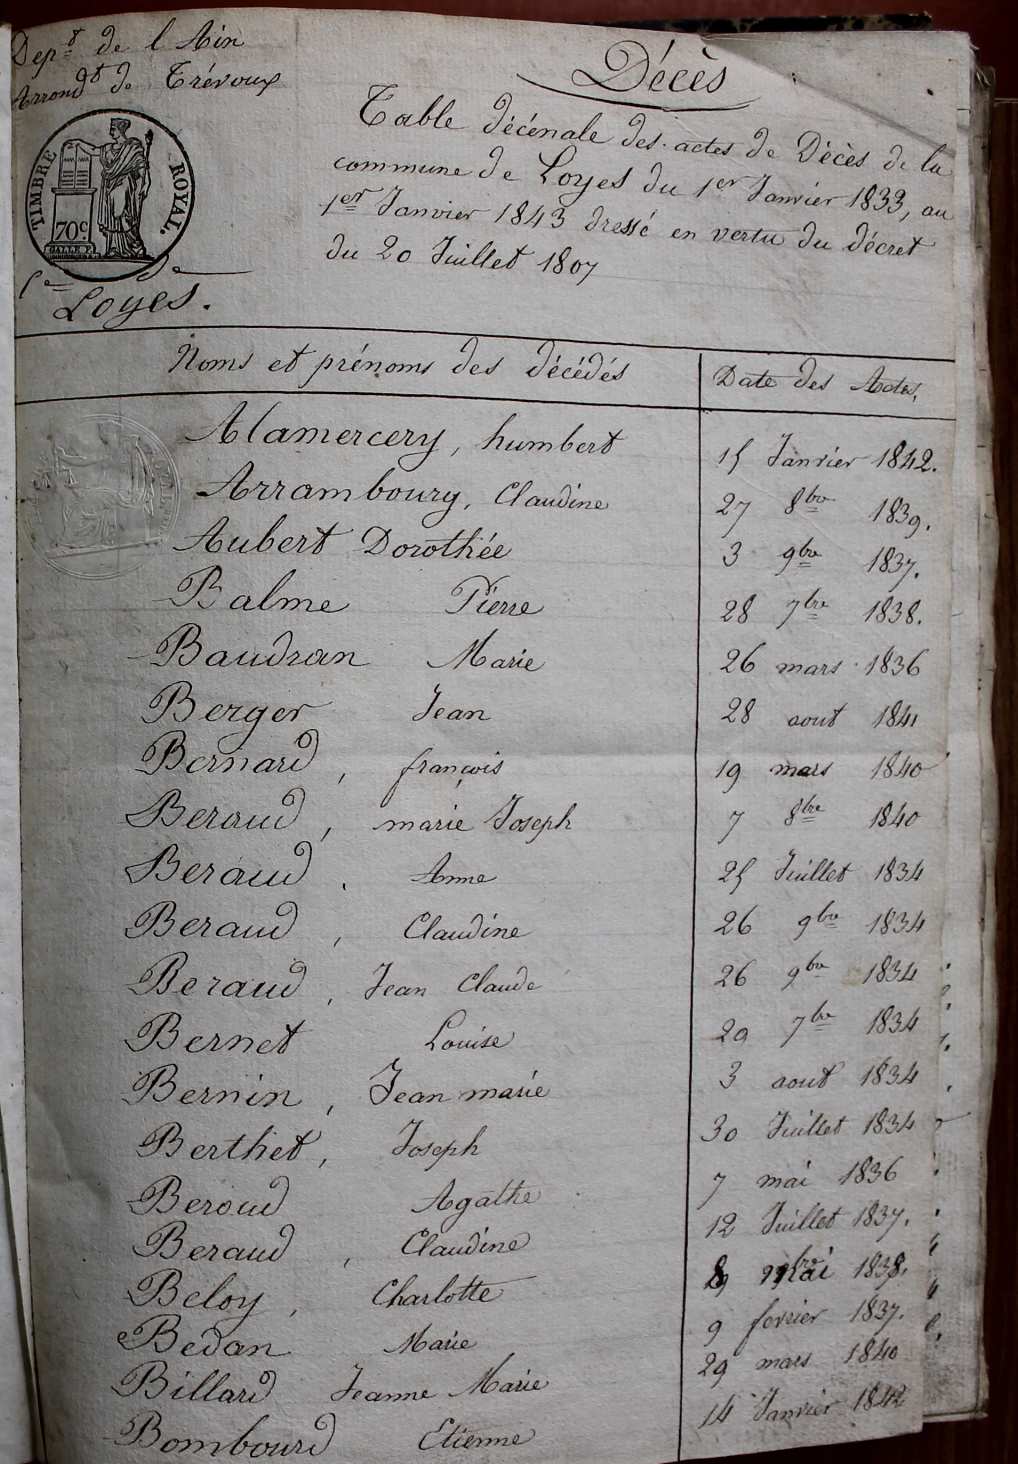 Dept de l Ain
Arrondt de Trévoux
TIMBRE ROYAL
70c
Cne de
Loyes.
Décès
Table décénale des actes de Décès de la
commune de Loyes du 1er Janvier 1833, au
1er Janvier 1843 dressé en vertu du décret
du 20 Juillet 1807
Noms et prénoms des décédés Date des Actes,
Alamercery, humbert 15 Janvier 1842.
Arrambourg, Claudine 27 8bre 1839.
Aubert Dorothée 3 9bre 1837.
Balme Pierre 28 7bre 1838.
Baudran Marie 26 mars 1836
Berger Jean 28 aout 1841
Bernard, françois 19 mars 1840
Beraud, marie Joseph 7 8bre 1840
Beraud, Anne 25 Juillet 1834
Beraud, Claudine 26 9bre 1834
Beraud, Jean Claude 26 9bre 1834
Bernet Louise 29 7bre 1834
Bernin, Jean marie 3 aout 1834
Berthet, Joseph 30 Juillet 1834
Beroud Agathe 7 mai 1836
Beraud, Claudine 12 Juillet 1837.
Beloy, Charlotte mai 1838.
Bedan Marie 9 fevrier 1837.
Billard Jeanne Marie 29 mars 1840
Bombourd Etienne 14 Janvier 1842